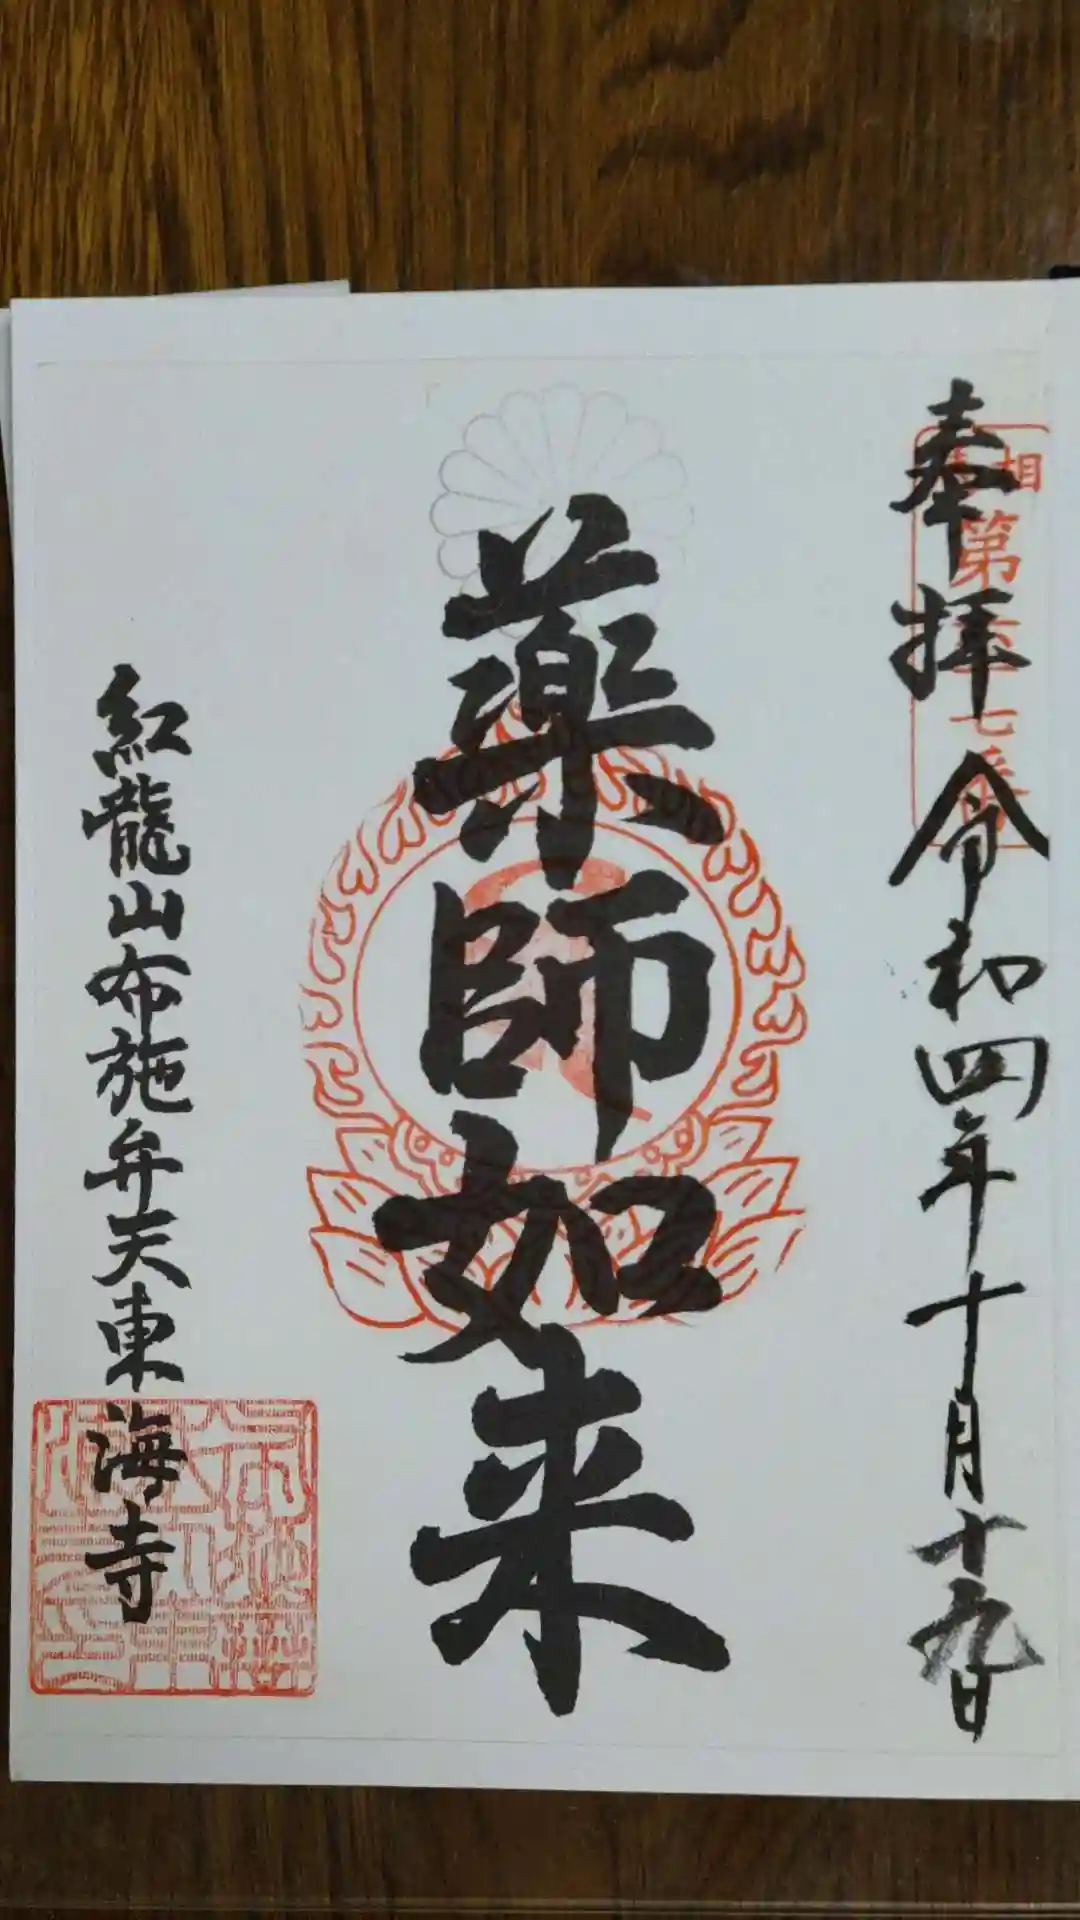 奉拝 令和四年十月十九日
薬師如来
紅龍山布施弁天東海寺
相
第
七番